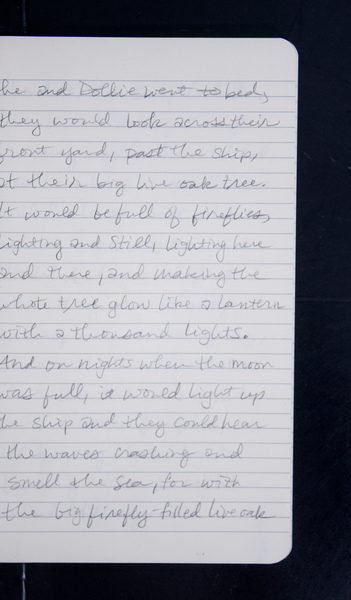 he and Dollie went to bed,
they would look across their
front yard, past the ship,
at their big live oak tree.
It would be full of fireflies,
lighting and still, lighting here
and there, and making the
whole tree glow like a lantern
with a thousand lights.
And on nights when the moon
was full, it would light up
the ship and they could hear
the waves crashing and
smell the sea, for with
the big firefly-filled live oak